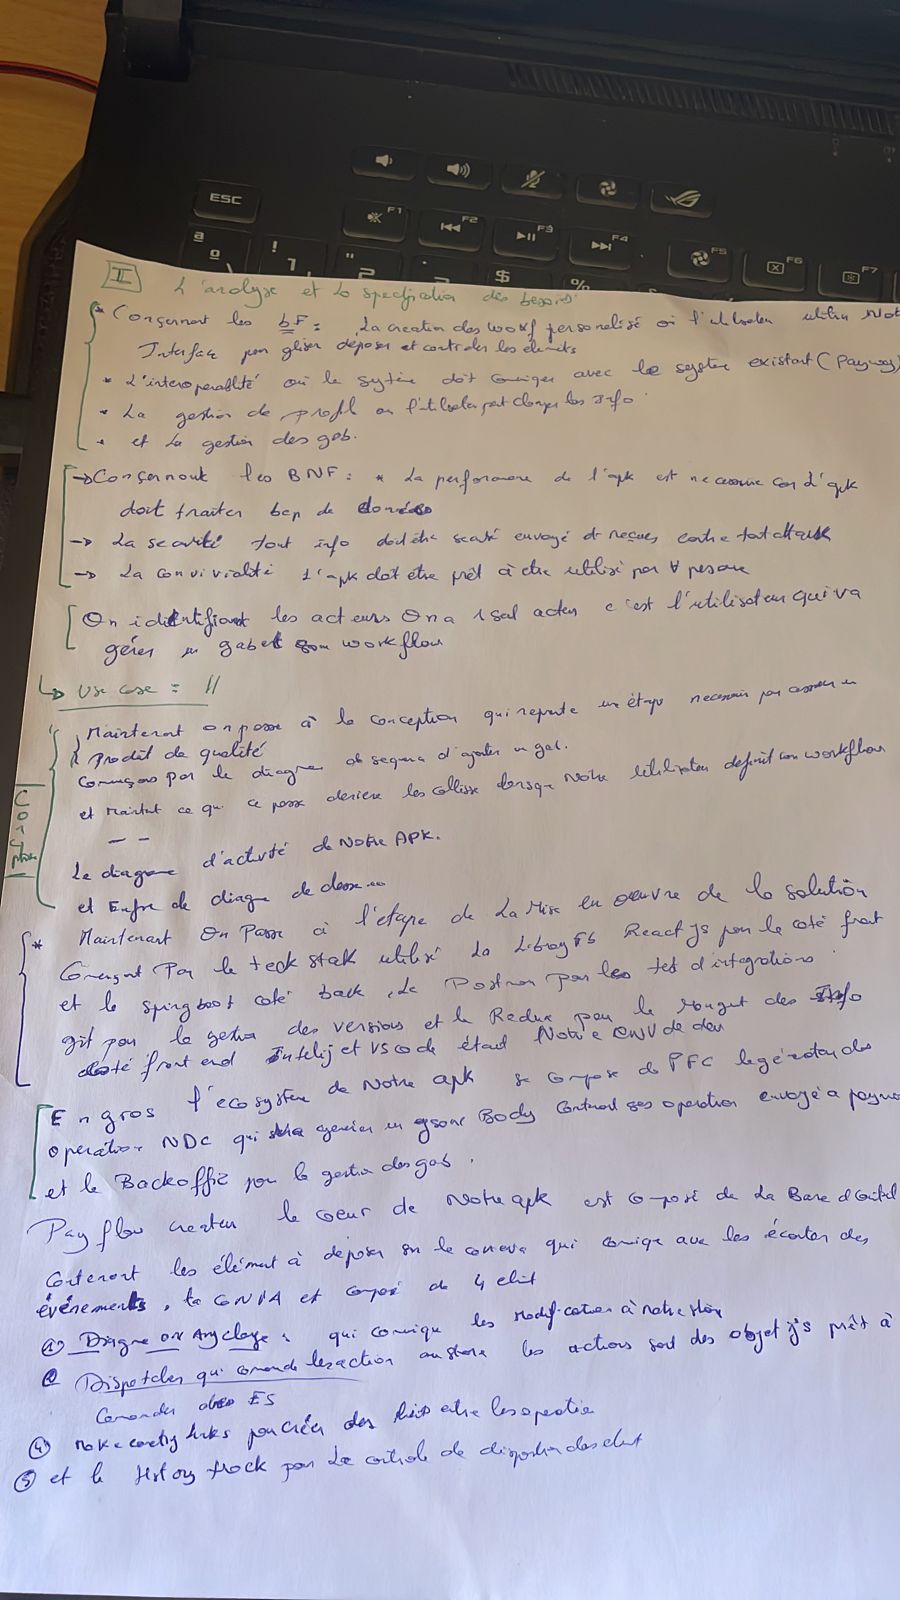 ESC
F1
F2
F3
F4
F5
F6
F7
a
o
!
1
"
2
$
%
II L'analyse et la specification des besoins
* Conçernant les bF : La creation des workf personalisé où l'utilisateu utilise Not
Interface pour gliser déposer et controler les élements
* L'interoperablité où le système doit comniquer avec le system existant (Payway)
* La gestion de profil ou l'utilisateur peut changer les Info
* et la gestion des gab.
→ Conçernant les BNF : * La performance de l'apk est necessaire car l'apk
doit traiter bcp de données
→ La securité tout info doit être securé envoyé et reçues contre tout attack
→ La convivialité L'apk doit être prêt à etre utilisé par ∀ personne
On identifiant les acteurs On a 1 seul acteur c'est l'utilisateur qui va
gérer un gab et workflow
↳ Use case = //
Maintenant on passe à la conception qui une étape necessaire pour un
Produit de qualité
Començons par le diagramme de sequence d'ajouter un gab.
et maintenant ce qui ce passe deriere les collisse lorsque Notre utilisateur definit un workflow
— —
Le diagramme d'activité de Notre APK.
et Enfin le diagramme de classe...
Conception
* Maintenant On Passe à l'etape de La Mise en oeuvre de la solution
Començant Par le teck stak utilisé La Library React Js pour le coté front
et le springboot coté back, Le Postman pour les test d'integrations
git pour la gestion des versions et le Redux pour le des Info
coté front end Intelij et VS code étant Notre env de dev
En gros l'ecosystème de Notre apk se compose de PFC
operation NDC qui un Body Contenant ses operation envoyé a
et le Backoffice pour la gestion des gab.
Pay flow creator le coeur de Notre apk est composé de La Barre d'outil
contenant les élément à déposer sur le caneva qui comnique avec les écouteurs des
événements, et composé de 4
① qui comnique les modification à notre store
② Dispatcher qui comande les action au store les actions sont des objet js prêt à
④ links pour créer des liens entre les operation
⑤ et le History track pour Le controle de